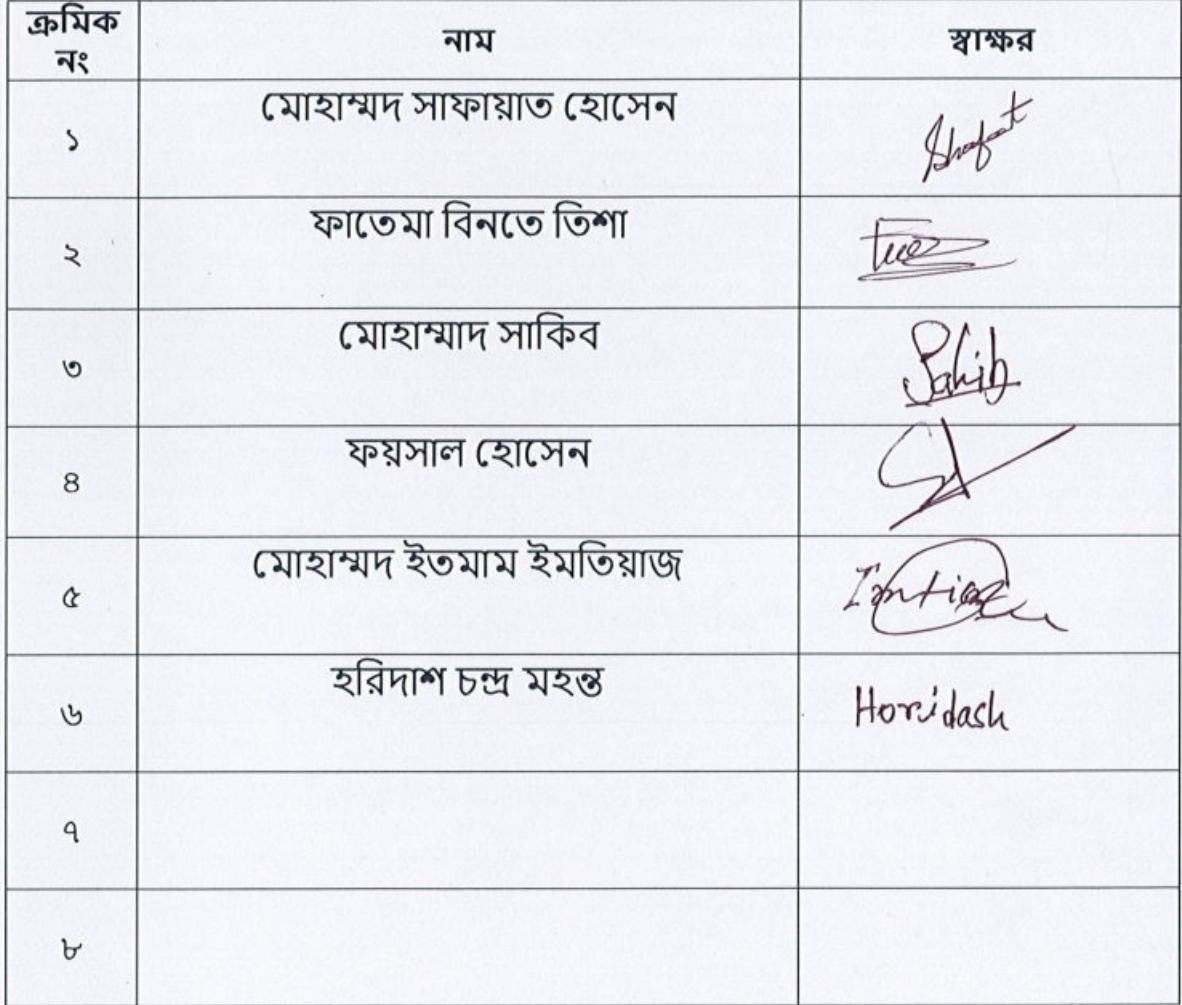 ক্রমিক নং নাম স্বাক্ষর
১ মোহাম্মদ সাফায়াত হোসেন Shafaat
২ ফাতেমা বিনতে তিশা
৩ মোহাম্মাদ সাকিব Sakib
৪ ফয়সাল হোসেন
৫ মোহাম্মদ ইতমাম ইমতিয়াজ Imtiaz
৬ হরিদাশ চন্দ্র মহন্ত Horidash
৭
৮